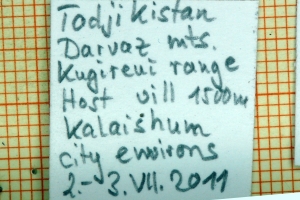 Todjikistan
Darvaz mts.
Kugireui range
Host vill 1500m
Kalaishum
city environs
2.-3.VII.2011